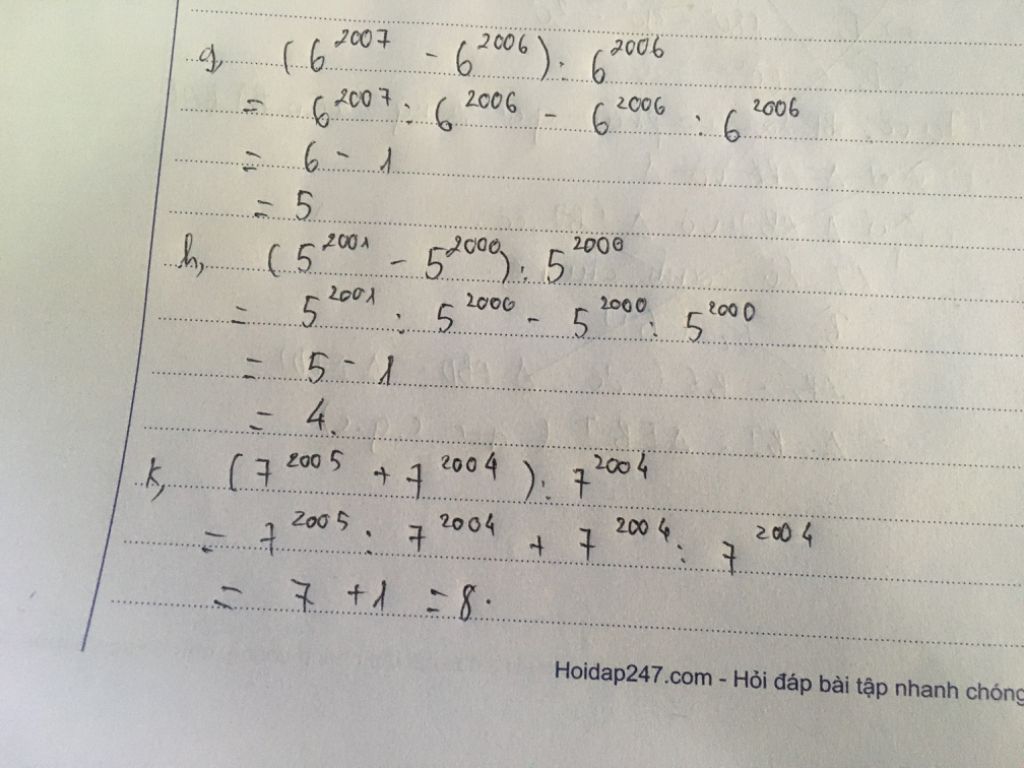 g, (6^2007 - 6^2006) : 6^2006
= 6^2007 : 6^2006 - 6^2006 : 6^2006
= 6 - 1
= 5
h, (5^2001 - 5^2000) : 5^2000
= 5^2001 : 5^2000 - 5^2000 : 5^2000
= 5 - 1
= 4.
k, (7^2005 + 7^2004) : 7^2004
= 7^2005 : 7^2004 + 7^2004 : 7^2004
= 7 + 1 = 8.
Hoidap247.com - Hỏi đáp bài tập nhanh chóng